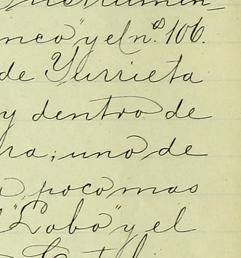 nco", y el n.º 106.
de Yurrieta
y dentro de
ra; uno de
a, poco mas
"Lobo" y el